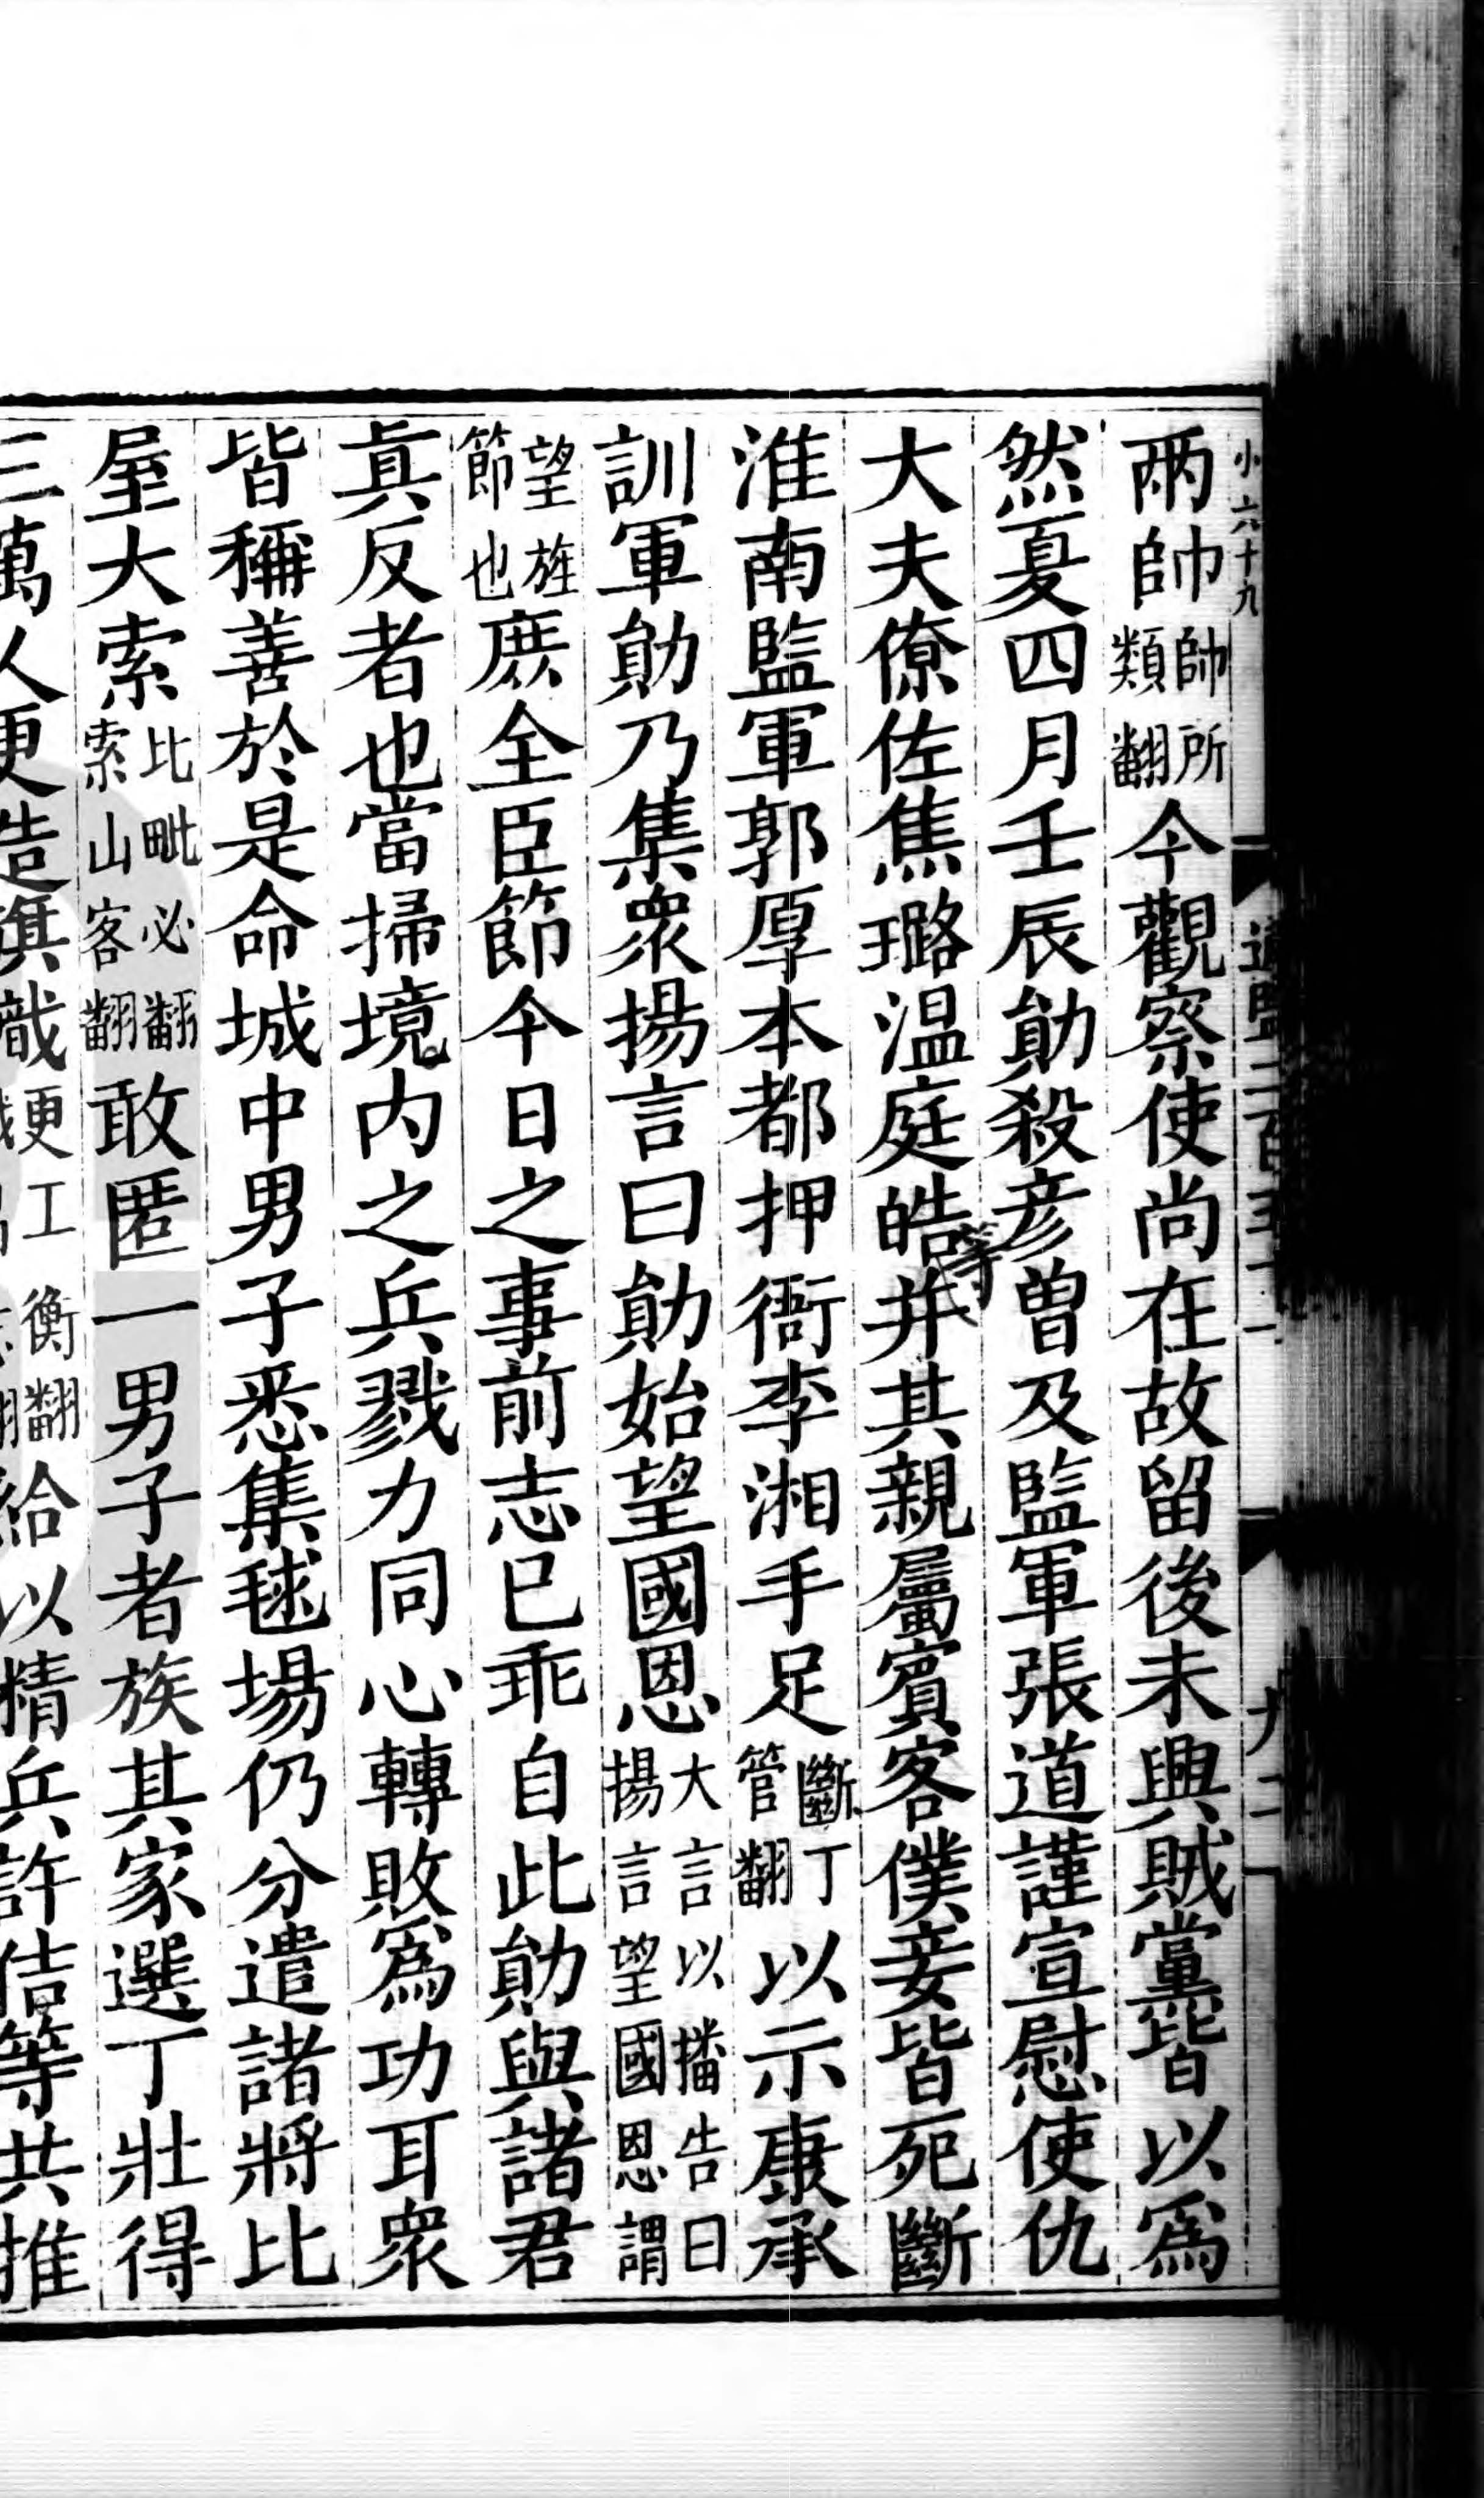 小六十九
兩帥帥所類翻今觀察使尚在故留後未興賊黨皆以爲
然夏四月壬辰勛殺彦曾及監軍張道謹宣慰使仇
大夫僚佐焦璐温庭皓等并其親屬賓客僕妾皆死斷
淮南監軍郭厚本都押衙李湘手足斷丁管翻以示康承
訓軍勛乃集衆揚言曰勛始望國恩大言以播告曰揚言望國恩謂
望旌節也庶全臣節今日之事前志已乖自此勛與諸君
真反者也當掃境内之兵戮力同心轉敗爲功耳衆
皆稱善於是命城中男子悉集毬場仍分遣諸將比
屋大索比毗必翻索山客翻敢匿一男子者族其家選丁壯得
三萬人更造旗幟更工衡翻給以精兵許佶等共推